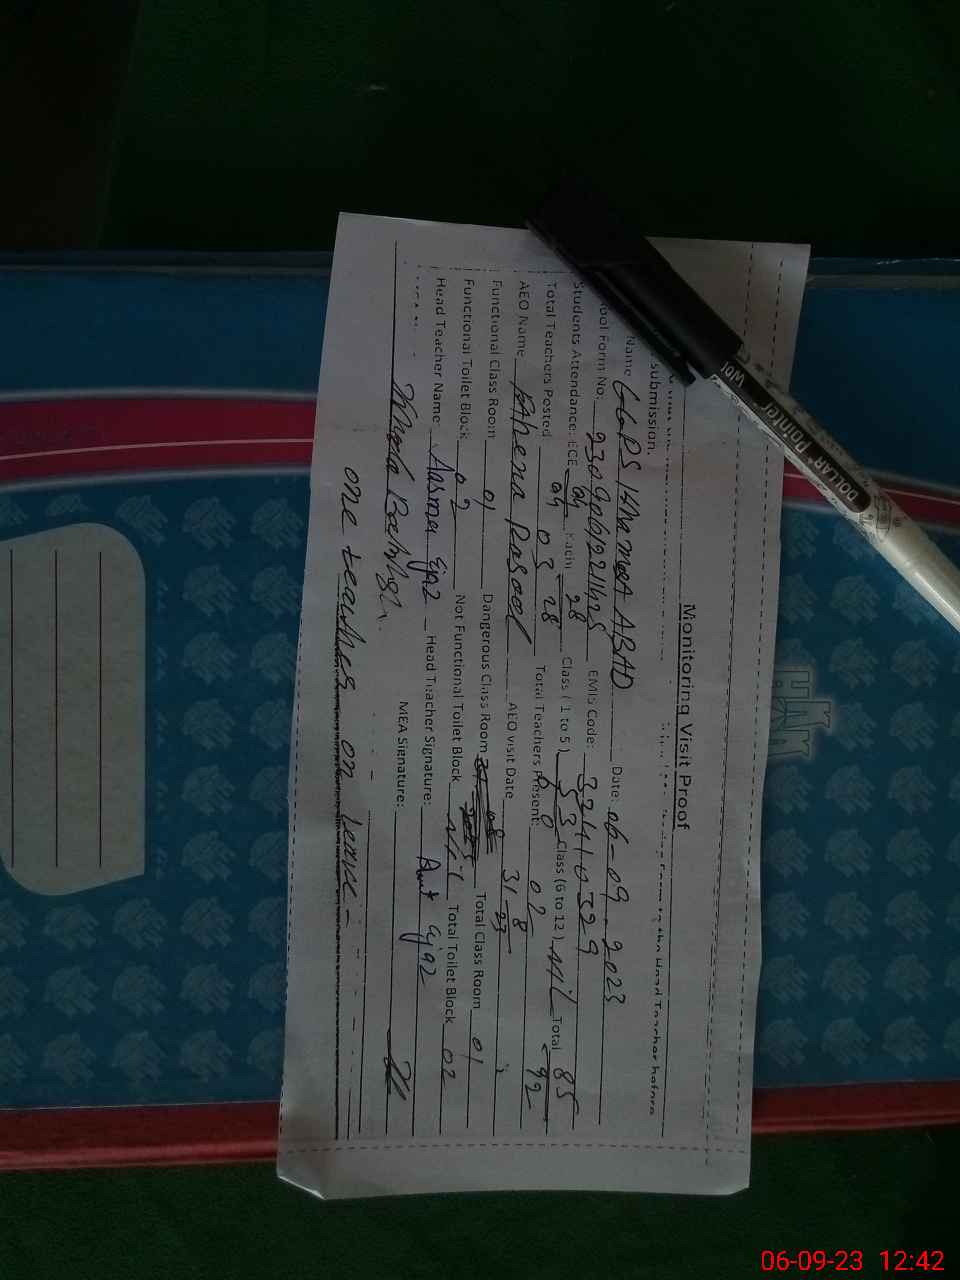 Monitoring Visit Proof
the Head Teacher before
submission.
Name GGPS Khamsa ABAD Date: 06-09-2023
ool Form No: EMIS Code: 33410329
Students Attendance: ECE 04 Kachi 28 Class (1 to 5) 53 Class (6 to 12) Nil Total 85
04 28 60 92
Total Teachers Posted 03 Total Teachers Present: 02
AEO Name Rasool AEO visit Date 31 8 23
Functional Class Room 01 Dangerous Class Room Total Class Room 01
Functional Toilet Block 02 Not Functional Toilet Block Nil Total Toilet Block 02
Head Teacher Name: Aasma Ejaz Head Teacher Signature: Ejaz
MEA Signature:
one teacher on leave
DOLLAR Pointer
06-09-23 12:42